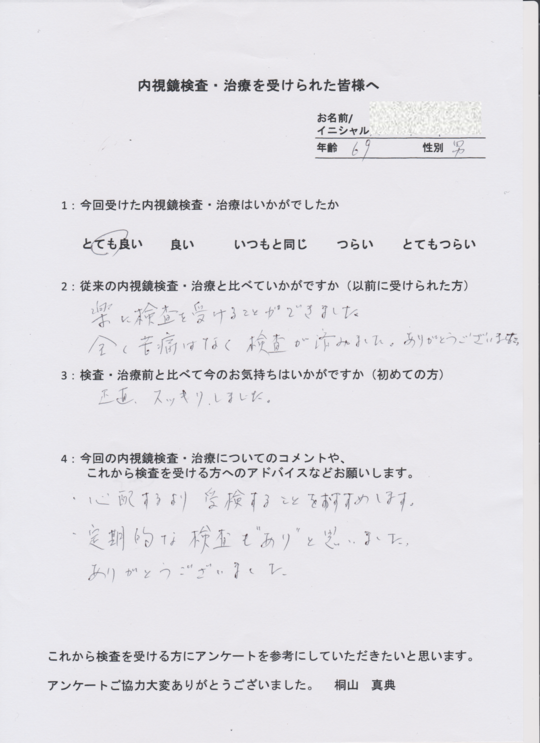 内視鏡検査・治療を受けられた皆様へ
お名前/
イニシャル
年齢 69 性別 男
1：今回受けた内視鏡検査・治療はいかがでしたか
とても良い 良い いつもと同じ つらい とてもつらい
2：従来の内視鏡検査・治療と比べていかがですか（以前に受けられた方）
楽に検査を受けることができました
全く苦痛はなく検査が済みました。ありがとうございました
3：検査・治療前と比べて今のお気持ちはいかがですか（初めての方）
正直、スッキリしました。
4：今回の内視鏡検査・治療についてのコメントや、
これから検査を受ける方へのアドバイスなどお願いします。
・心配するより受検することをおすすめします。
・定期的な検査も"あり"と思いました。
ありがとうございました
これから検査を受ける方にアンケートを参考にしていただきたいと思います。
アンケートご協力大変ありがとうございました。 桐山 真典